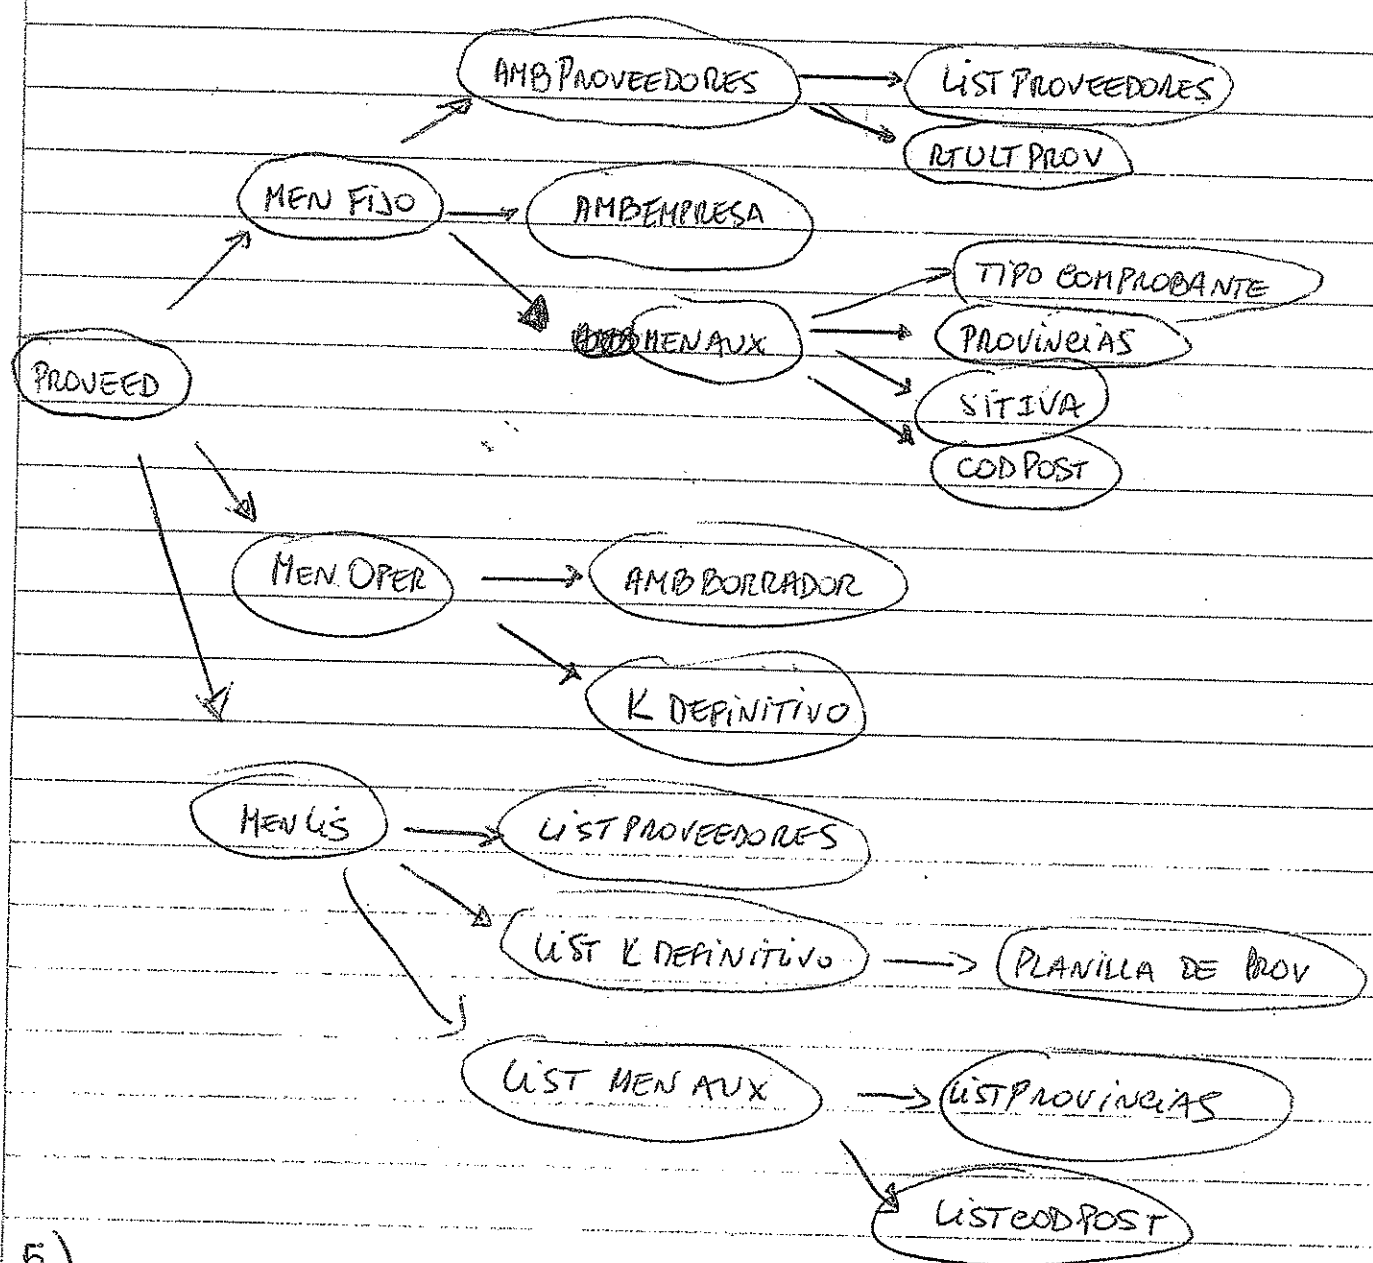 AMBPROVEEDORES
LIST PROVEEDORES
RTULTPROV
MEN FIJO
AMBEMPRESA
TIPO COMPROBANTE
MENAUX
PROVINCIAS
PROVEED
SITIVA
CODPOST
MEN. OPER
AMBBORRADOR
K DEFINITIVO
MENLIS
LISTPROVEEDORES
LIST K DEFINITIVO
PLANILLA DE PROV
LIST MEN AUX
LISTPROVINCIAS
LISTCODPOST
5)